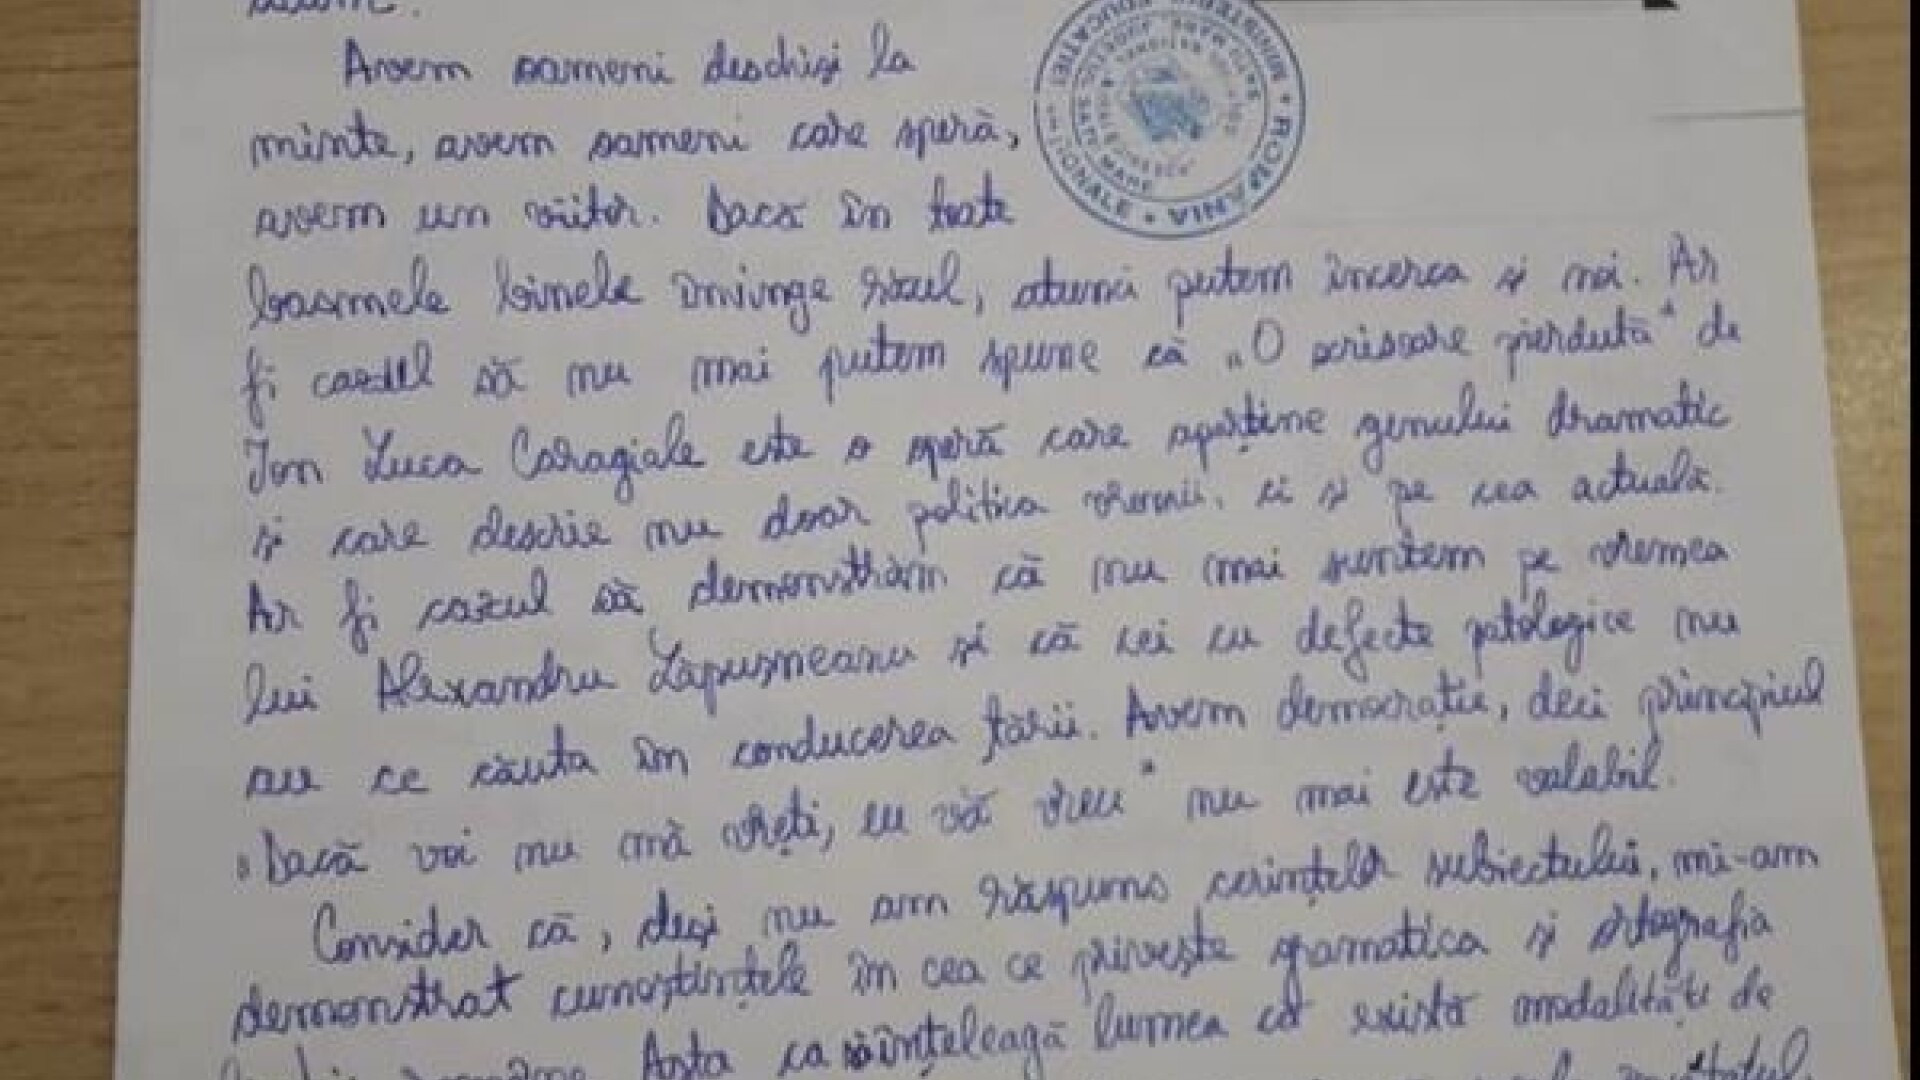 Avem oameni deschiși la
minte, avem oameni care speră,
avem un viitor. Dacă în toate
basmele binele învinge răul, atunci putem încerca și noi. Ar
fi cazul să nu mai putem spune că „O scrisoare pierdută" de
Ion Luca Caragiale este o operă care aparține genului dramatic
și care descrie nu doar politica vremii, ci și pe cea actuală.
Ar fi cazul să demonstrăm că nu mai suntem pe vremea
lui Alexandru Lăpușneanu și că cei cu defecte patologice nu
au ce căuta în conducerea țării. Avem democrație, deci principiul
„Dacă voi nu mă vreți, eu vă vreu" nu mai este valabil.
Consider că, deși nu am răspuns cerințelor subiectului, mi-am
demonstrat cunoștințele în cea ce privește gramatica și ortografia
limbii române. Asta ca să înțeleagă lumea că există modalități de
ROMANIA * MINISTERUL EDUCAȚIEI NAȚIONALE *
JUDEȚUL SATU MARE